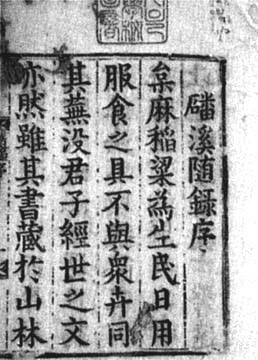 磻溪隨錄序
枲麻稻粱為生民日用
服食之具不與衆卉同
其蕪没君子經世之文
亦然雖其書藏扵山林